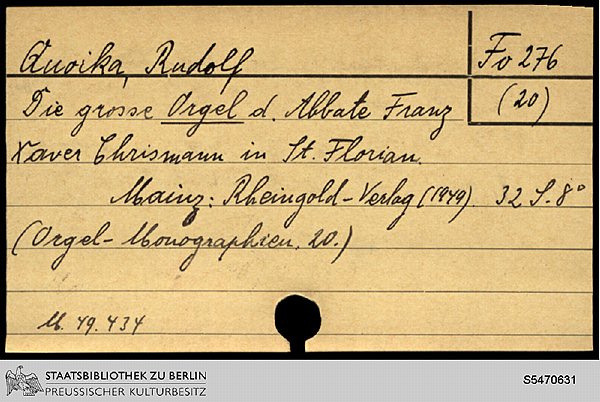 Quoika, Rudolf
Fo 276
(20)
Die grosse Orgel d. Abbate Franz
Xaver Chrismann in St. Florian.
Mainz: Rheingold-Verlag (1949). 32 S. 8°
(Orgel-Monographien. 20.)
M. 49.434
STAATSBIBLIOTHEK ZU BERLIN
PREUSSISCHER KULTURBESITZ
S5470631